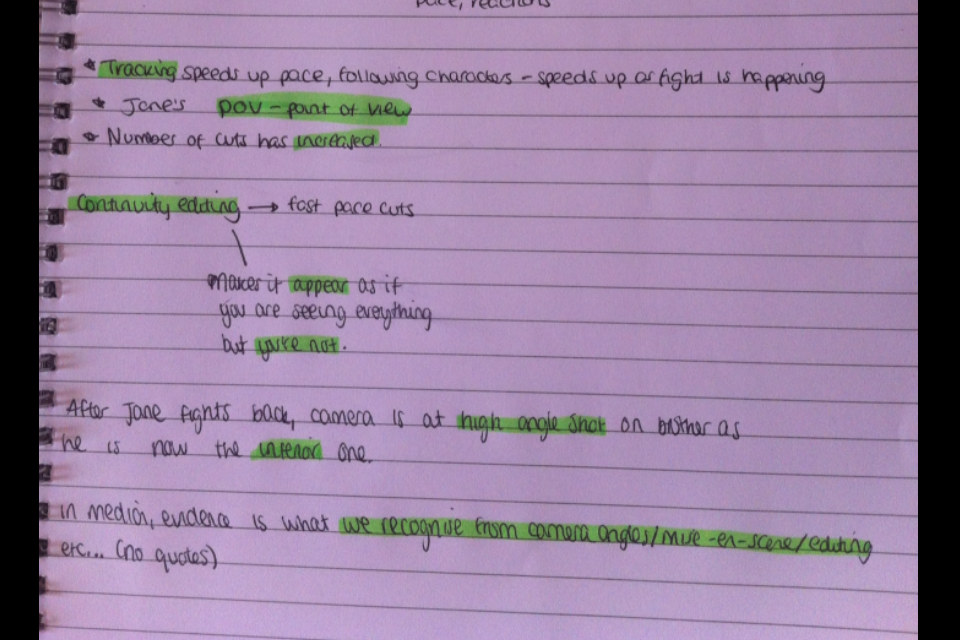 pace, reactions
* Tracking speeds up pace, following characters - speeds up as fight is happening
* Jane's POV - point of view
* Number of cuts has increased.
Continuity editing → fast pace cuts
makes it appear as if
you are seeing everything
but you're not.
After Jane fights back, camera is at high angle shot on brother as
he is now the inferior one.
in media, evidence is what we recognise from camera angles/mise-en-scene/editing
etc... (no quotes)